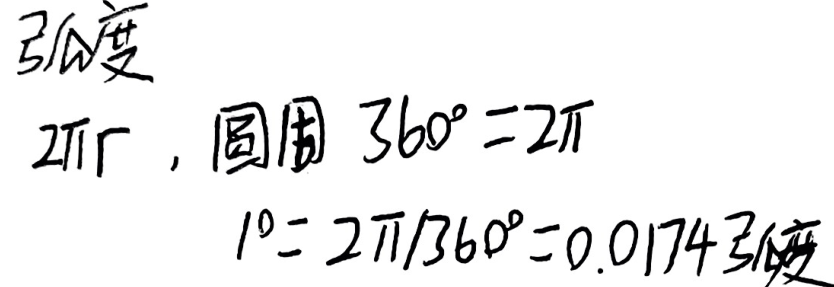 弧度
2πr，圆周 360°=2π
1°=2π/360°=0.0174弧度